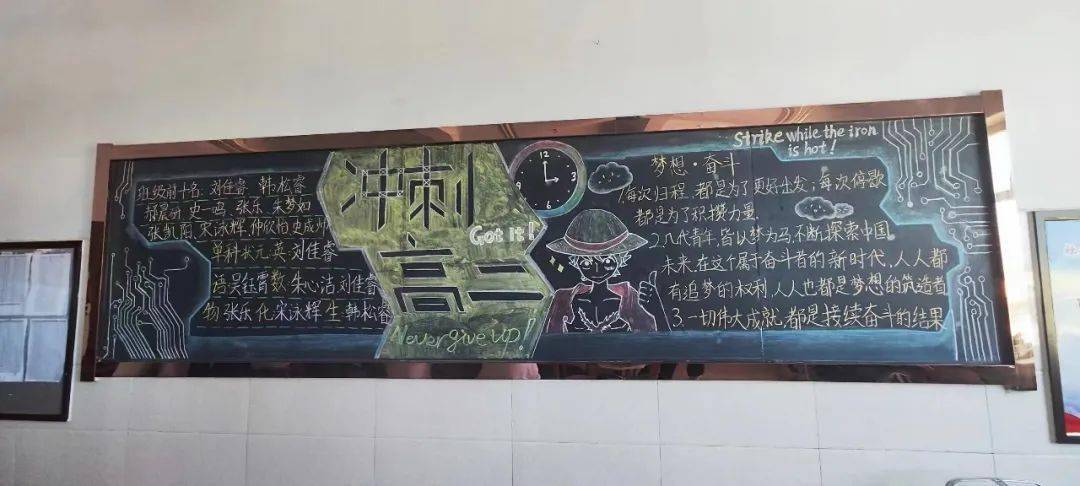 班级前十名: 刘佳睿 韩松睿
史一鸣 张乐 朱梦如
张凯阳 宋泳辉 仲欣怡 史成帅
单科状元 英: 刘佳睿
语 吴钰霄 数: 朱心洁 刘佳睿
物 张乐 化: 宋泳辉 生 韩松睿
冲刺
高二
Got it!
Never give up!
12
3
6
9
Strike while the iron
is hot!
梦想·奋斗
1.每次归程,都是为了更好出发;每次停歇
都是为了积攒力量.
2.几代青年,皆以梦为马,不断探索中国
未来,在这个属于奋斗者的新时代,人人都
有追梦的权利,人人也都是梦想的筑造者
3.一切伟大成就,都是接续奋斗的结果